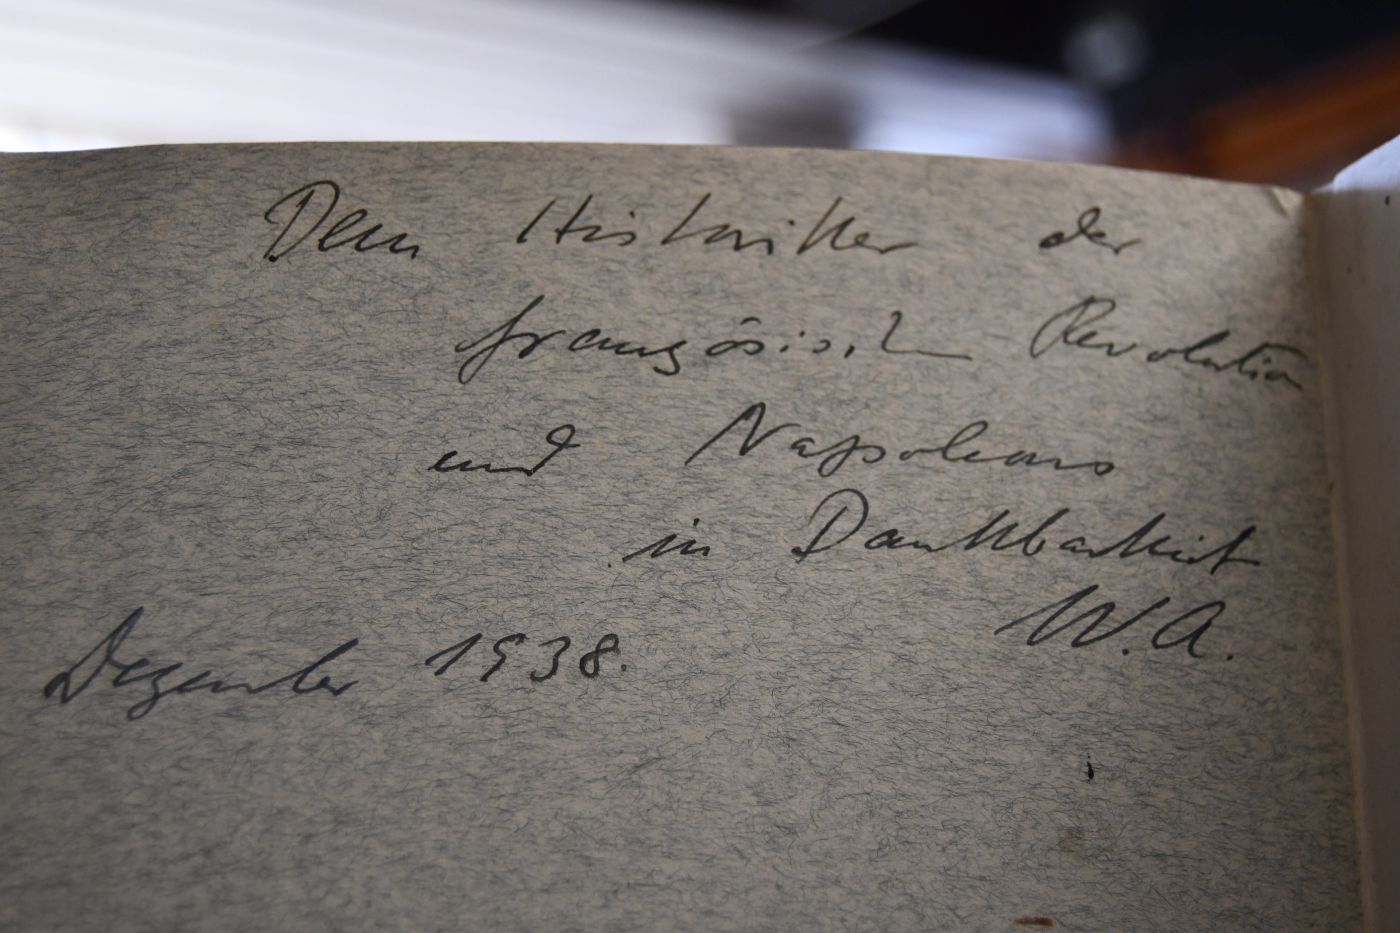 Dem Historiker der
französischen Revolution
und Napoleons
in Dankbarkeit
W.A.
Dezember 1938.